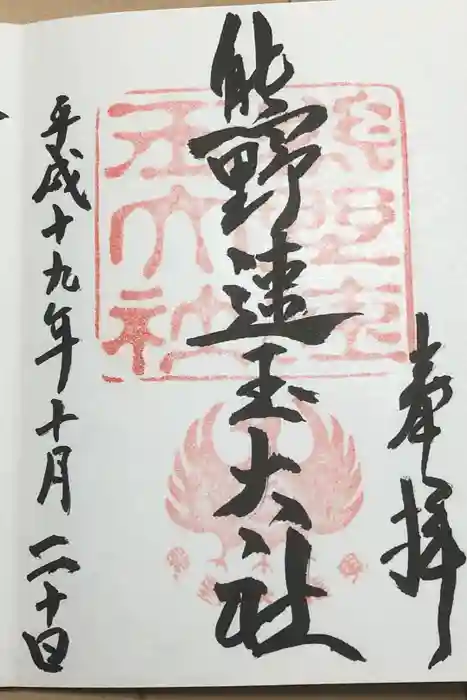 奉拝
熊野速玉大社
熊野速玉大社
平成十九年十月二十日